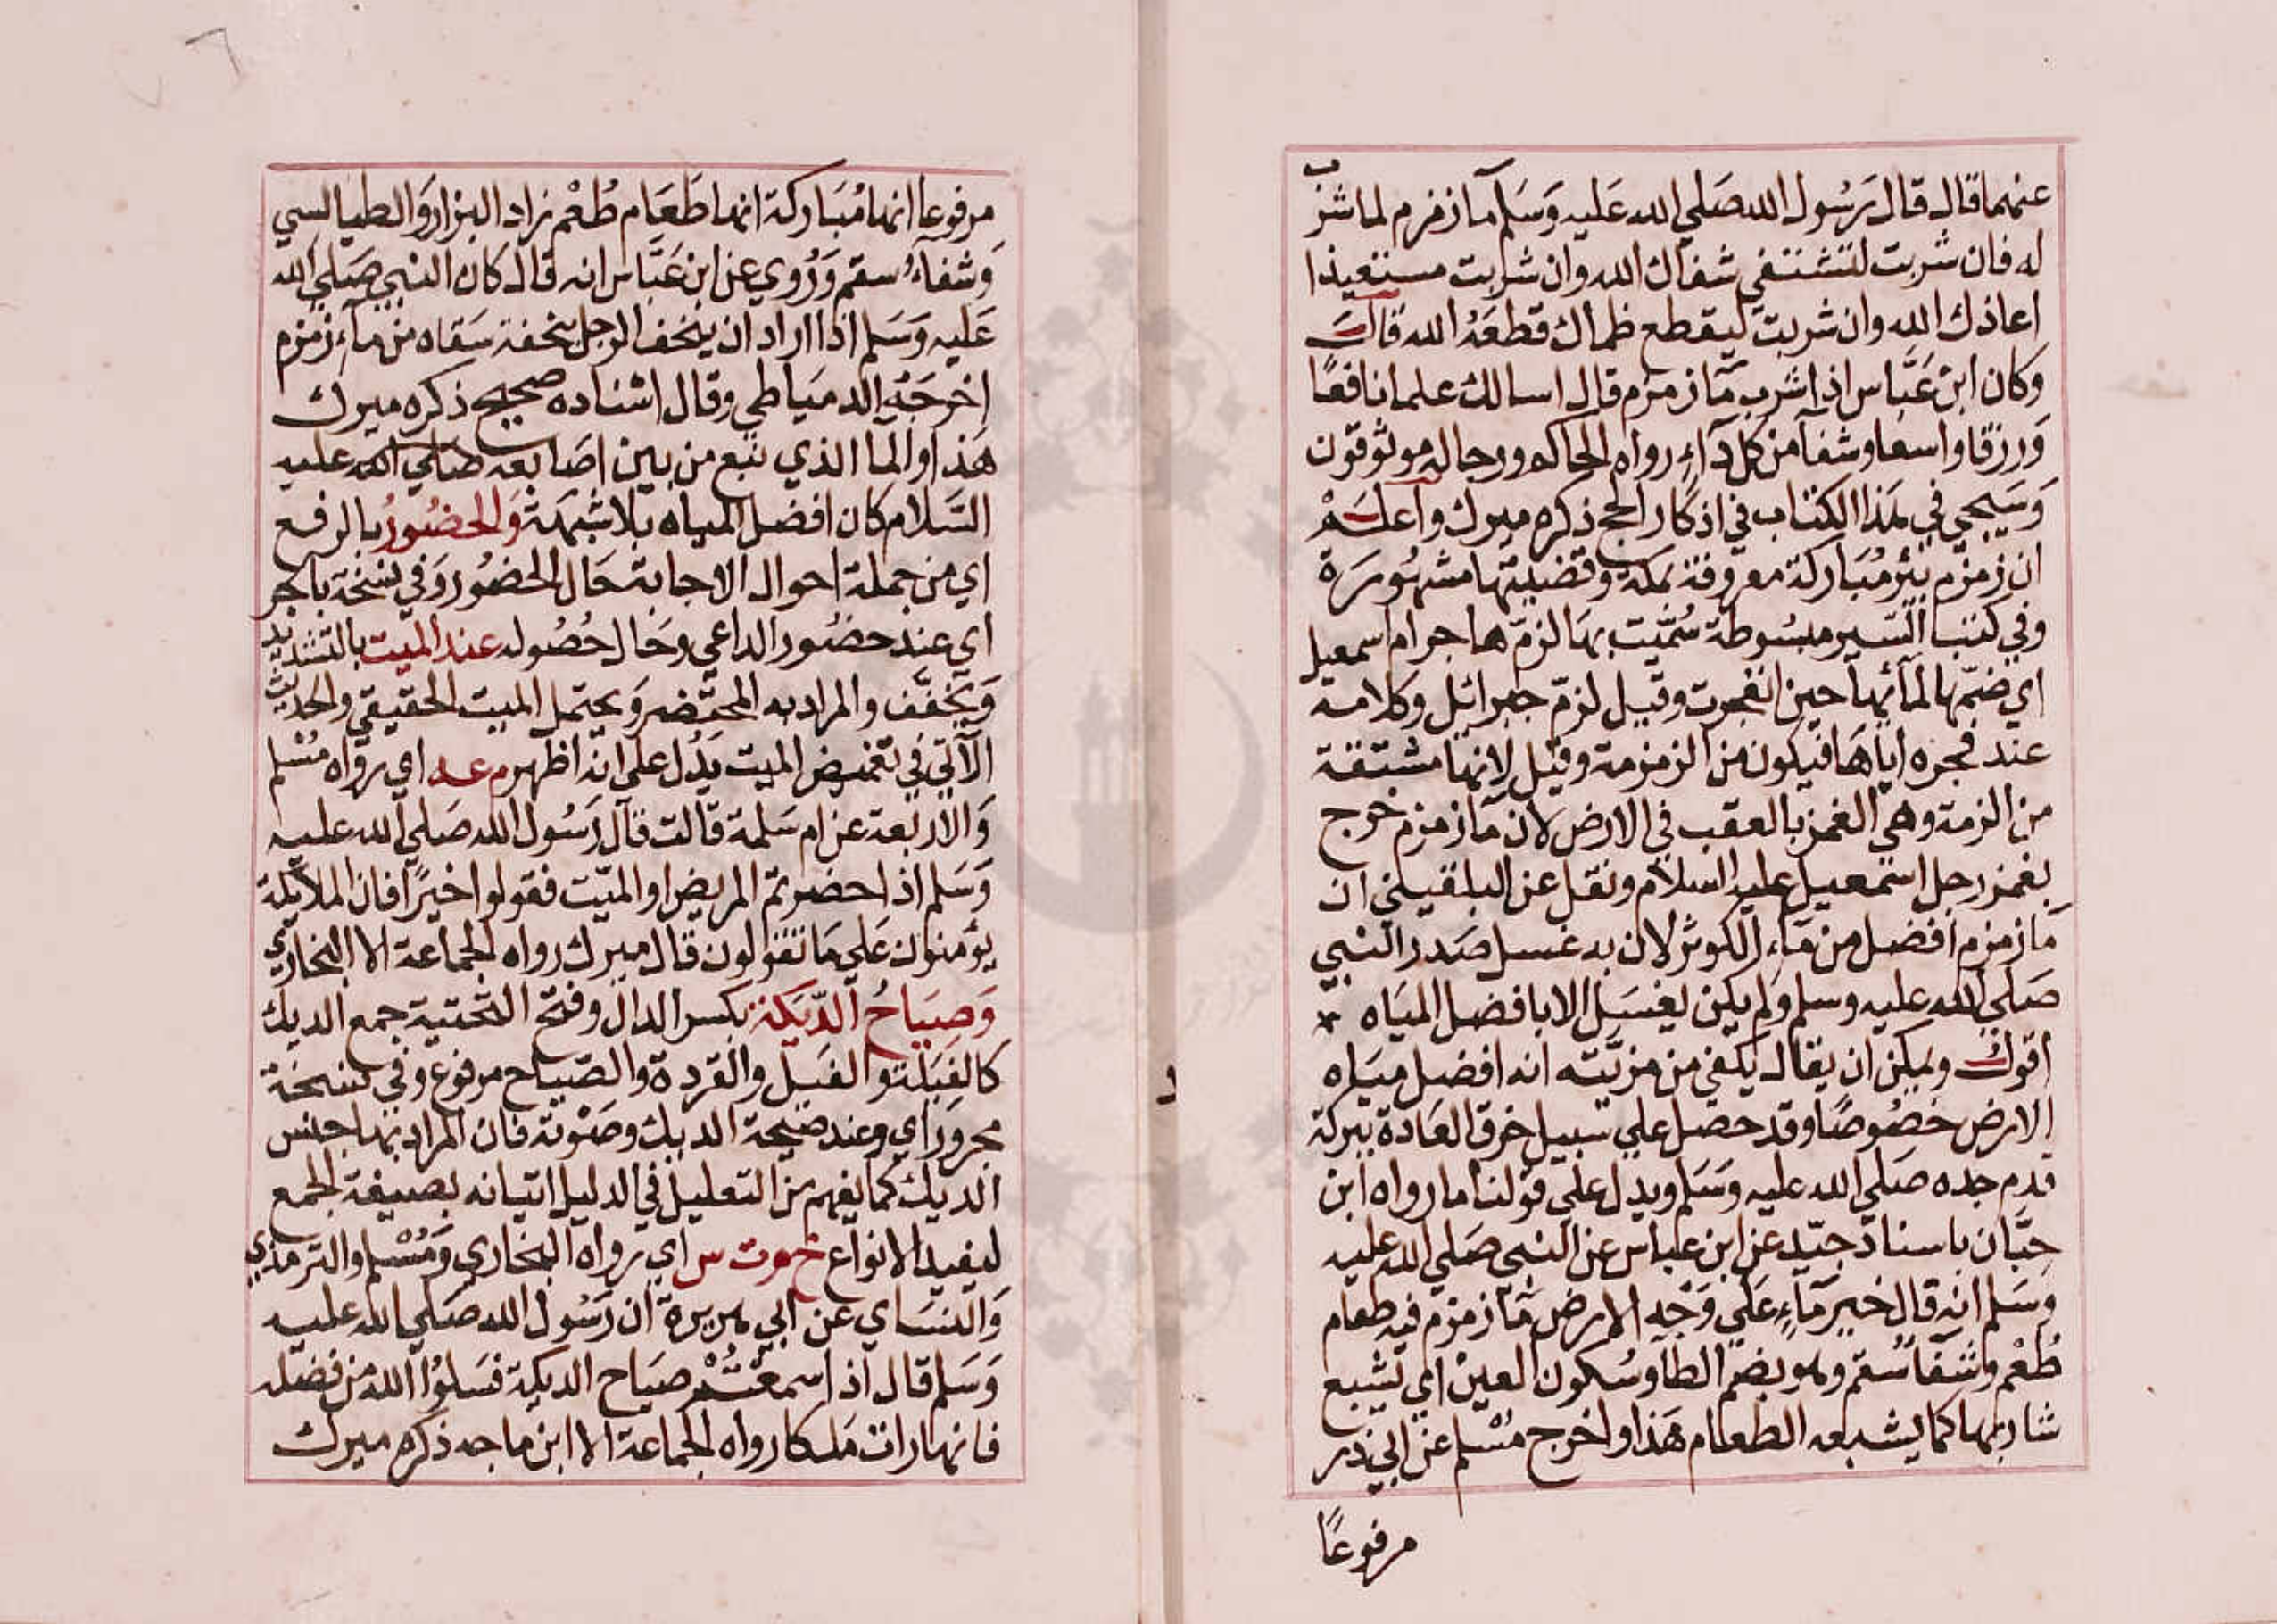 عنهما قال قال رسول الله صلي الله عليه وسلم ماز مزم لما شرب
له فان شربت لتشتفي شفاك الله وان شربت مستعيذا
اعاذك الله وان شربت ليقطع ظماك قطعه الله قال
وكان ابن عباس اذا شرب مآ زمزم قال اسالك علما نافعا
ورزقا واسعا وشفآ من كل دآءٍ رواه الحاكم ورجاله موثوقون
وسيجي في هذا الكتاب في اذكار الحج ذكره ميرك واعلم
ان زمزم بئر مباركة معروفة بمكة وفضيلتها مشهورة
وفي كتب السير مبسوطة سُمّيت بها لزمّ هاجر ام اسمعيل
اي ضمّها لمآئها حين انفجرت وقيل لزمّ جبرائل وكلامه
عند فجره اياها فيكون من الزمزمة وقيل لانها مشتقة
من الزمة وهي الغمز بالعقب في الارض لان مآ زمزم خرج
بغمز رجل اسمعيل عليه السلام ونقل عن البلقيني ان
مآ زمزم افضل من مآء الكوثر لان به غسل صدر النبي
صلي الله عليه وسلم ولم يكن ليغسل الا بافضل المياه *
اقول ويمكن ان يقال يكفي من مزيّته انه افضل مياه
الارض خصوصًا وقد حصل علي سبيل خرق العادة ببركة
قدم جده صلي الله عليه وسلم ويدل علي قولنا ما رواه ابن
حبّان باسناد جيّد عن ابن عباس عن النبي صلي الله عليه
وسلم انه قال خير مآءٍ علي وجه الارض مآ زمزم فيه طعام
طُعْم وشفآ سُقم وهو بضم الطا وسكون العين اي يشبع
شاربها كما يشبعه الطعام هذا واخرج مسلم عن ابي ذر
مرفوعًا
مرفوعا انها مباركة انها طعام طُعْم زاد البزار والطيالسي
وشفآء سقم وروي عن ابن عباس انه قال كان النبي صلي الله
عليه وسلم اذا اراد ان يتحف الرجل بتحفة سقاه من مآء زمزم
اخرجه الدمياطي وقال اسناده صحيح ذكره ميرك
هذا والما الذي نبع من بين اصابعه صلي الله عليه
السلام كان افضل المياه بلا شبهة والحضور بالرفع
اي من جملة احوال الاجابة حال الحضور وفي نسخة بالجر
اي عند حضور الداعي وحال حصوله عند الميت بالتشديد
ويخفّف والمراد به المحتضر ويحتمل الميت الحقيقي والحديث
الآتي في تغميض الميت يدل علي انه اظهر م عه اي رواه مسلم
والاربعة عن ام سلمة قالت قال رسول الله صلي الله عليه
وسلم اذا حضرتم المريض او الميّت فقولوا خيرًا فان الملآيكة
يؤمنون علي ما تقولون قال ميرك رواه الجماعة الا البخاري
وصياح الدّيكة بكسر الدال وفتح التحتية جمع الديك
كالفيلة والفيل والقردة والصياح مرفوع وفي نسخة
مجرور اي وعند صيحة الديك وصوته فان المراد بها جنس
الديك كما يفهم من التعليل في الدليل اتيانه بصيغة الجمع
ليفيد الانواع خ م ت س اي رواه البخاري ومسلم والترمذي
والنساي عن ابي هريرة ان رسول الله صلي الله عليه
وسلم قال اذا سمعتم صياح الديكة فسلوا الله من فضله
فانها رات ملكا رواه الجماعة الا ابن ماجه ذكره ميرك